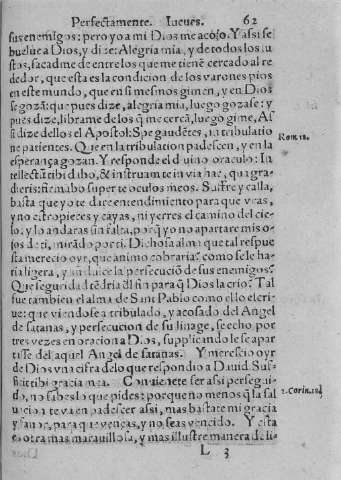 Perfectamente. Iueues. 62
sus enemigos: pero yo a mi Dios me acojo. Y assi se
buelue a Dios, y dize: Alegria mia, y de todos los iu
stos, sacadme de entre los que me tienẽ cercado al re
dedor, que esta es la condicion de los varones pios
en este mundo, que en si mesmos gimen, y en Dios
se gozã: que pues dize, alegria mia, luego gozase: y
pues dize, librame de los q̃ me cercã, luego gime, As
si dize dellos el Apostol: Spe gaudẽtes, in tribulatio
ne patientes. Que en la tribulation padescen, y en la
Rom 12.
esperança gozan. Y responde el diuino oraculo: In
tellectũ tibi dabo, & instruam te in via hac, qua gra
dieris: firmabo super te oculos meos. Suffre y calla,
basta que yo te dare entendimiento para que viuas,
y no estropieces y cayas, ni yerres el camino del cie-
lo: y lo andaras sin falta, porq̃ yo no apartare mis o-
jos de ti, mirãdo por ti. Dichosa alma que tal respue
sta merecio oyr, que animo cobraria? como se le ha-
ria ligera, y aũ dulce la persecuciõ de sus enemigos?
Que seguridad tẽdria dl fin para q̃ Dios la crio? Tal
fue tambien el alma de Sant Pablo como ello escri-
ue: que viendose atribulado, y acosado del Angel
de satanas, y persecucion de su linage, se echo, por
tres vezes en oracion a Dios, supplicandole se apar
tasse del aquel Angel de satanas. Y merescio oyr
de Dios vna cifra de lo que respondio a Dauid. Suf-
ficit tibi gracia mea. Conuienete ser assi persegui-
do, no sabes lo que pides: porque no menos q̃ la sal
2. Corin. 12.
uacion te va en padescer assi, mas bastate mi gracia
y fauor, para que venças, y no seas vencido. Y esta
es otra mas marauillosa, y mas illustre manera de li-
L 3